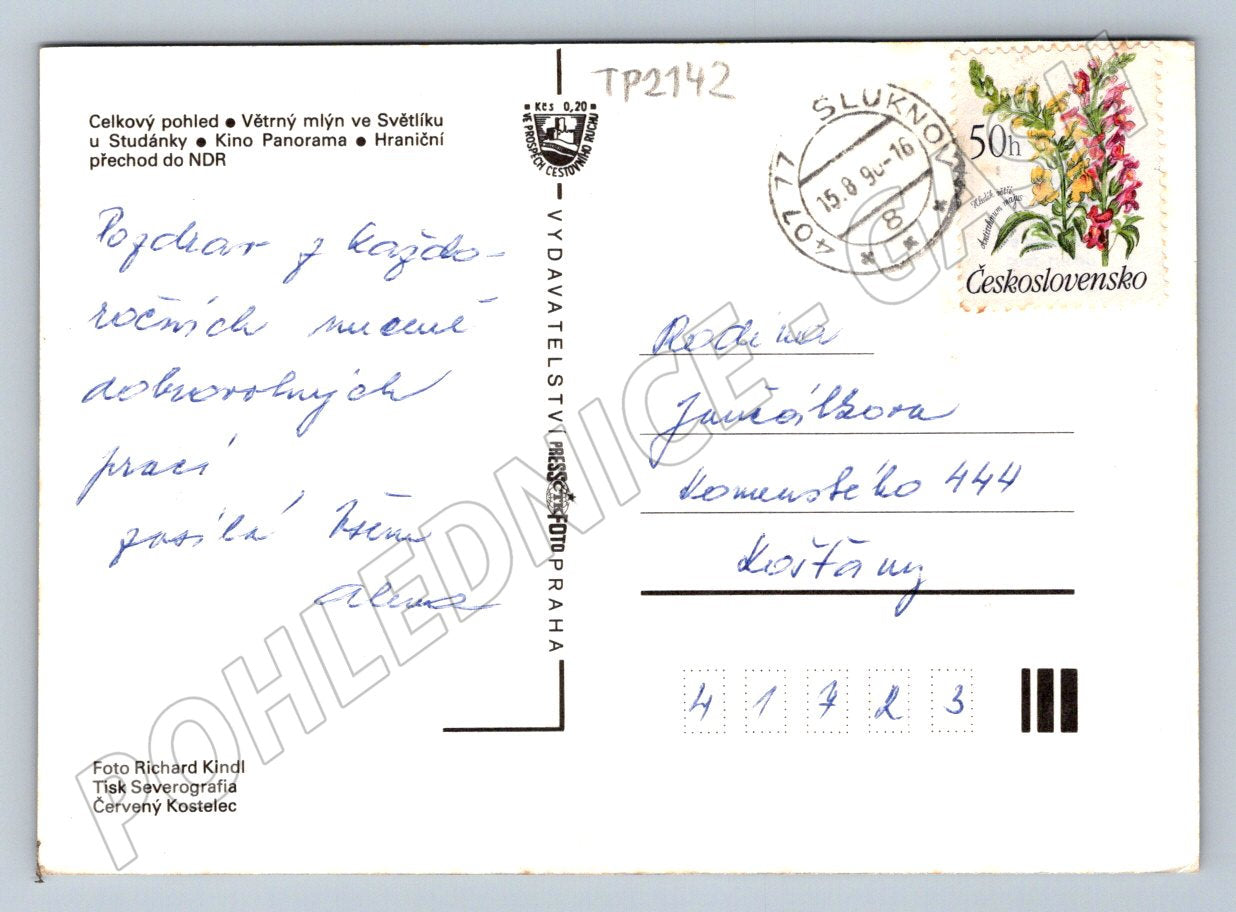 Celkový pohled ● Větrný mlýn ve Světlíku
u Studánky ● Kino Panorama ● Hraniční
přechod do NDR
Pozdrav z každo-
ročních nuceně
dobrovolných
prací
zasílá Všem
Alena
Foto Richard Kindl
Tisk Severografia
Červený Kostelec
Kčs 0,20
VE PROSPĚCH CESTOVNÍHO RUCHU
VYDAVATELSTVÍ PRESSFOTO PRAHA
ČTK
TP2142
407 77 ŠLUKNOV
15.8.90-16
8
50h
Antirrhinum majus
Československo
Rodina
Jančálkova
Komenského 444
Košťany
41723
POHLEDNICE - CASH